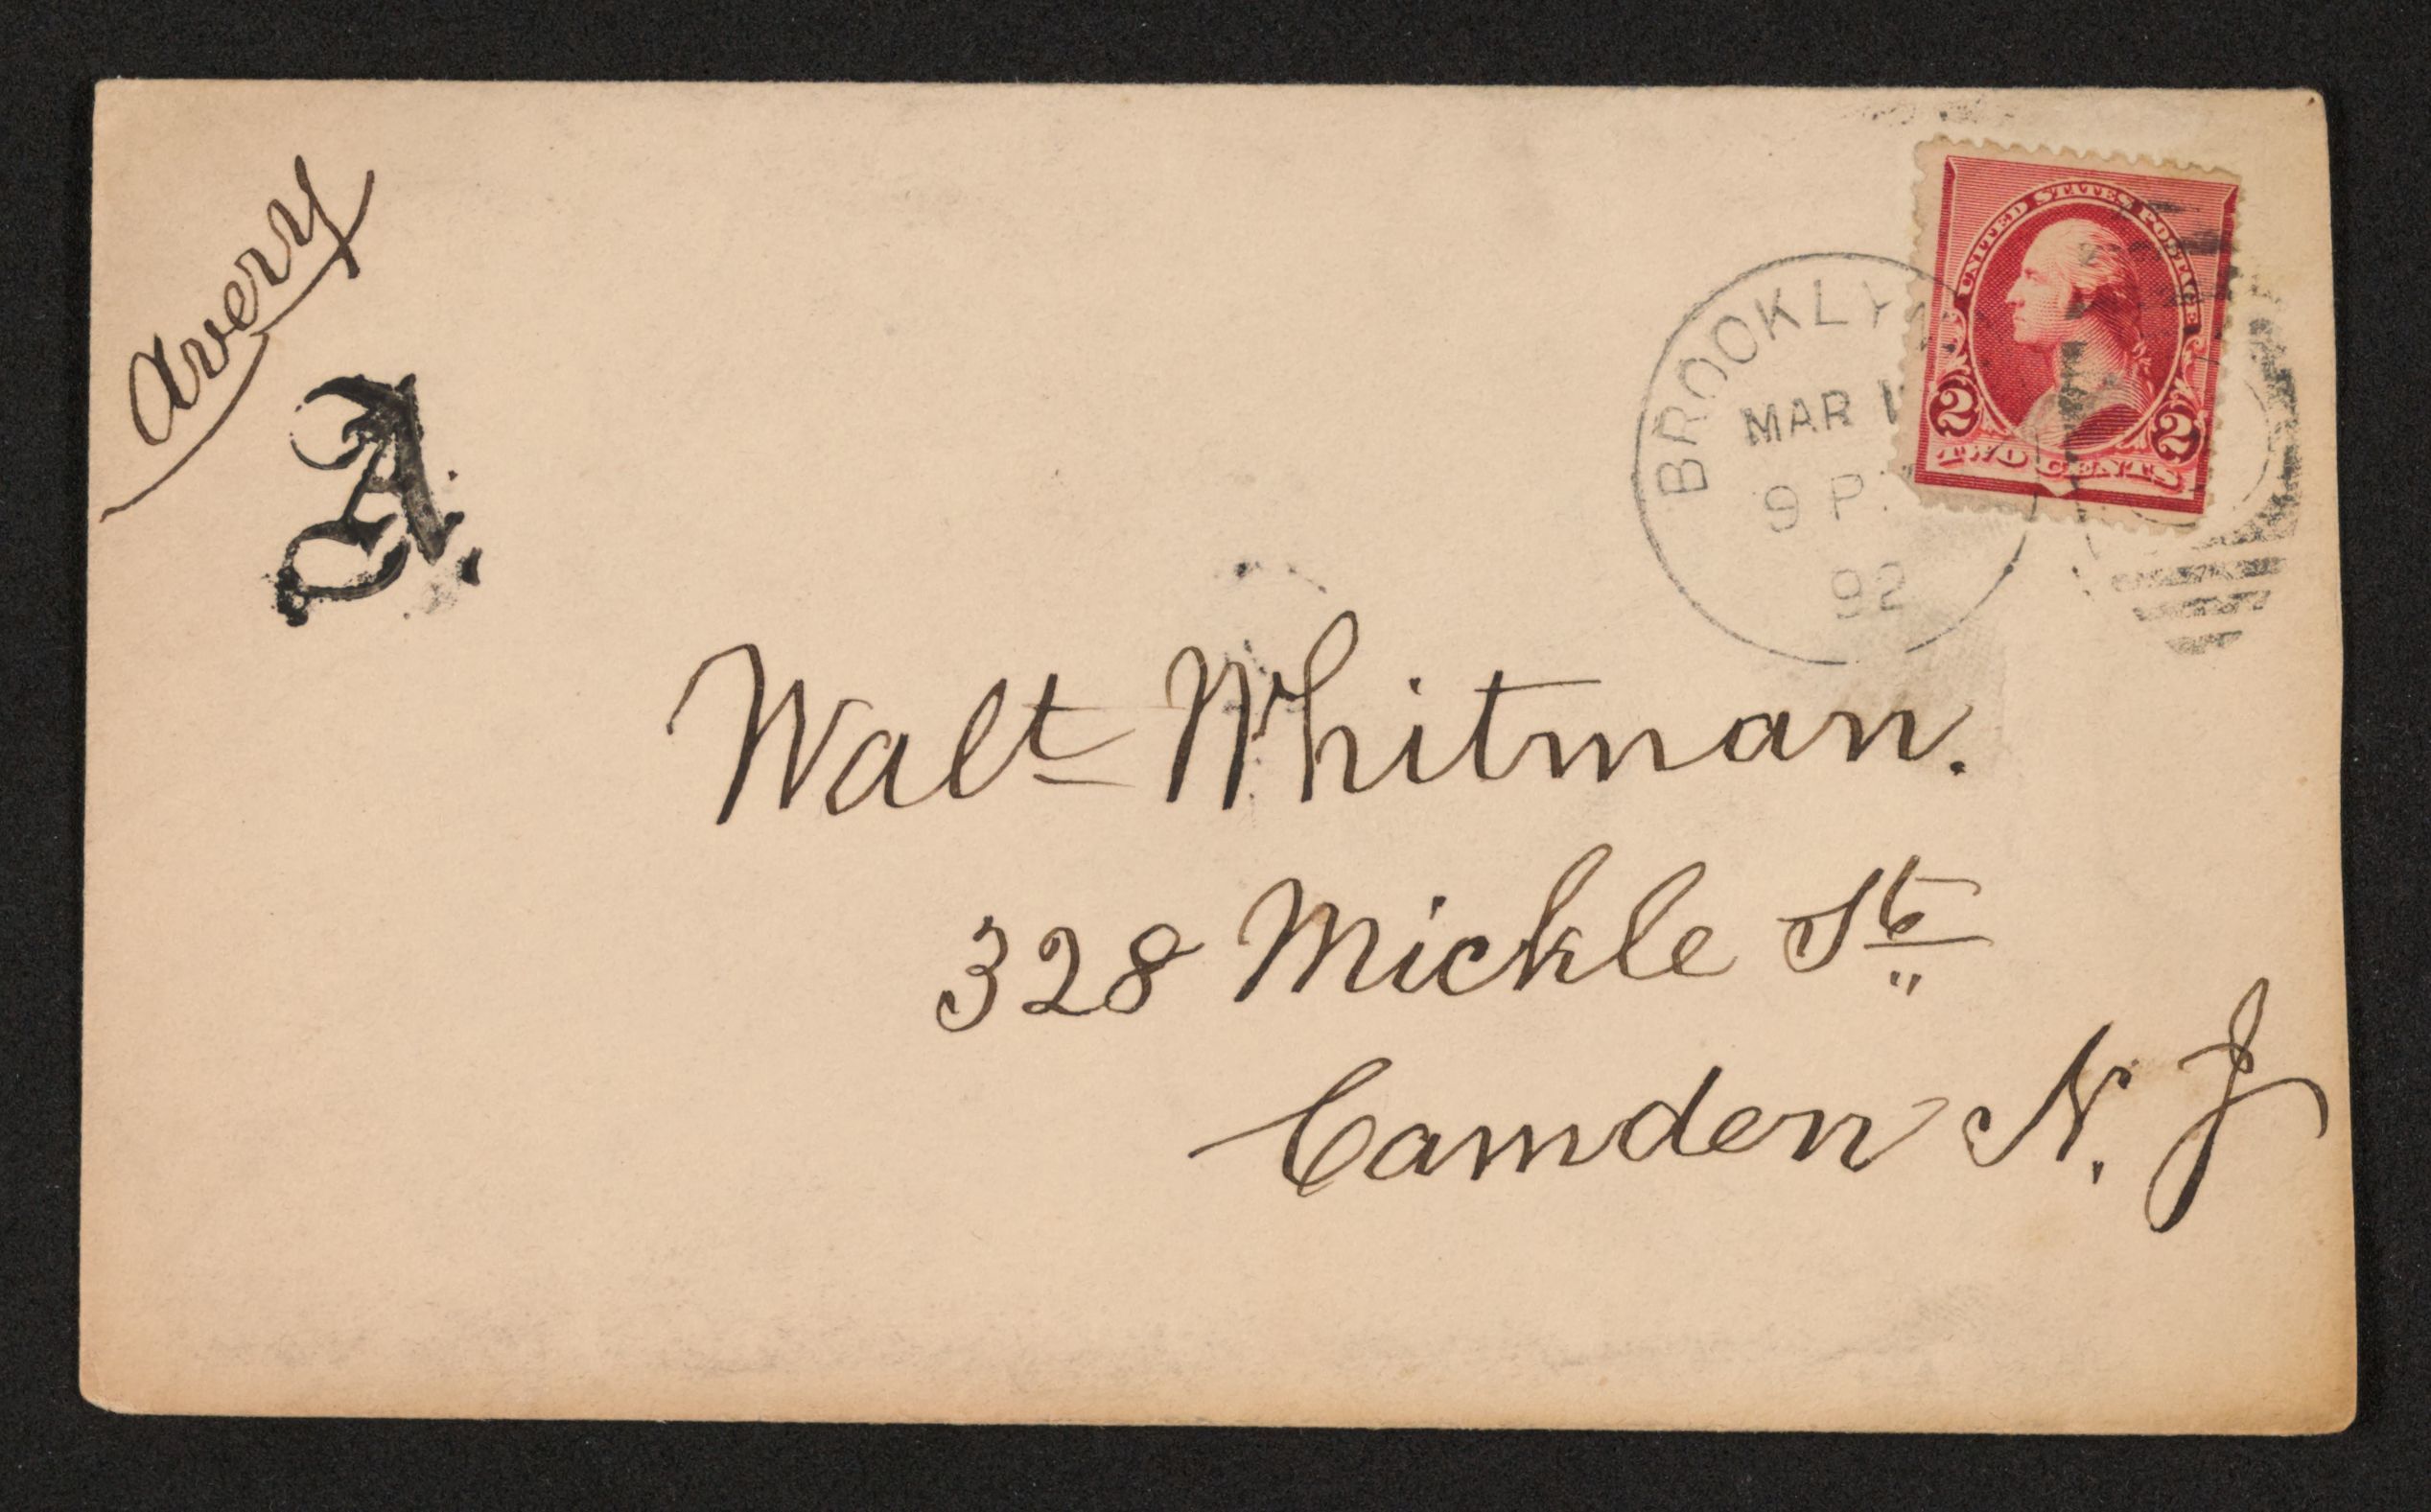 Avery
A.
BROOKLYN
MAR
9 P
92
UNITED STATES POSTAGE
2 2
TWO CENTS
Walt Whitman.
328 Mickle St
Camden N. J